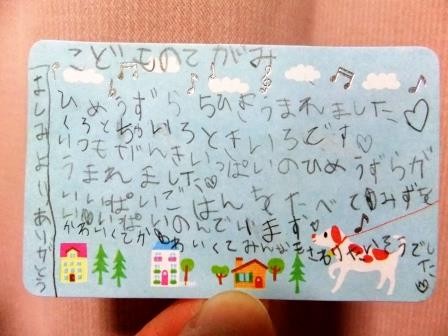 こどものてがみ
ひめうずら ちひきうまれました♡
くろとちゃいろときいろです♡
いつもげんきいっぱいのひめうずらが
うまれました。
いっぱいごはんをたべてみずを
いっぱいのんでいます。
かわいくてかわいくてみんな
そうでした
よりありがとう